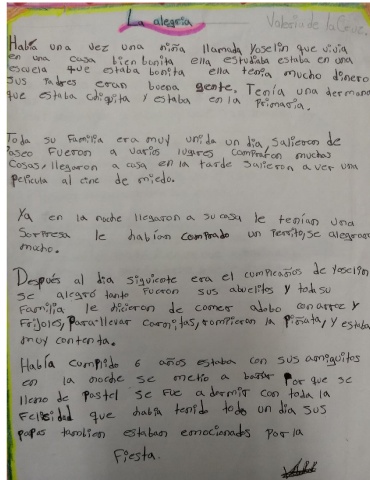 La alegría
Valeria de la Cruz.
Había una vez una niña llamada Yoselin que vivia
en una casa bien bonita ella estudiaba estaba en una
escuela que estaba bonita ella tenía mucho dinero
sus Padres eran buena gente. Tenía una dermana
que estaba chiquita y estaba en la Primaria.
Toda su Familia era muy unida un dia, salieron de
Paseo Fueron a varios lugares compraron muchas
Cosas, llegaron a casa en la tarde salieron a ver una
Pelicula al cine de miedo.
Ya en la noche llegaron a su casa le tenían una
Sorpresa le habían comprado un Perrito, se alegraron
mucho.
Después al dia siguiente era el cumpleaños de Yoselin
se alegró tanto Fueron sus abuelitos y toda su
Familia le hicieron de comer adobo con arroz y
Frijoles, Para llevar Carnitas, rompieron la Piñata, y estaba
muy contenta.
Había cumplido 6 años estaba con sus amiguitos
en la noche se metio a bañar Por que se
lleno de Pastel se Fue a dormir con toda la
Felicidad que había tenido todo un dia sus
papas tambien estaban emocionados Por la
Fiesta.